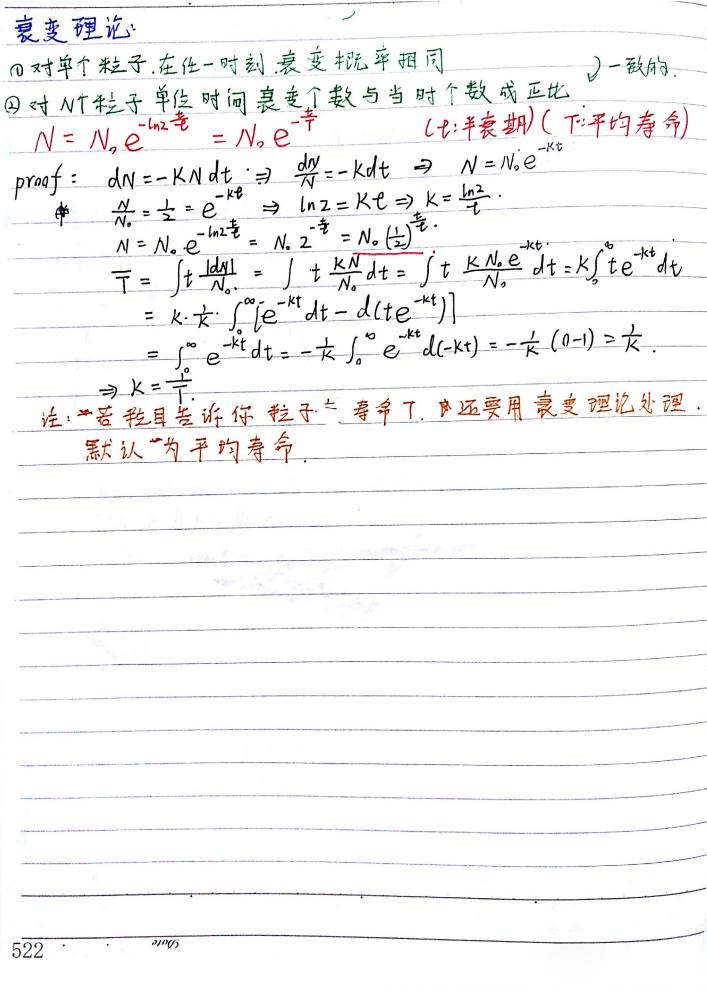 衰变理论:
① 对单个粒子.在任一时刻.衰变概率相同
② 对 N个粒子单位时间衰变个数与当时个数成正比 一致的.
N = N₀ e^{-ln2 t/t} = N₀ e^{-t/T} (t:半衰期)(T:平均寿命)
proof: dN = -KNdt ⇒ dN/N = -Kdt ⇒ N = N₀e^{-Kt}
N/N₀ = 1/2 = e^{-Kt} ⇒ ln2 = Kt ⇒ K = ln2/t.
N = N₀ e^{-ln2 t/t} = N₀ 2^{-t/t} = N₀ (1/2)^{t/t}.
T̅ = ∫t |dN|/N₀ = ∫ t KN/N₀ dt = ∫t K N₀ e^{-Kt}/N₀ dt = K∫₀^∞ te^{-Kt}dt
= K·1/K·∫₀^∞[e^{-Kt}dt - d(te^{-Kt})]
= ∫₀^∞ e^{-Kt}dt = -1/K ∫₀^∞ e^{-Kt}d(-Kt) = -1/K (0-1) = 1/K.
⇒ K = 1/T.
注: 若题目告诉你粒子 寿命T. 还要用衰变理论处理.
默认 为平均寿命.
Date
522